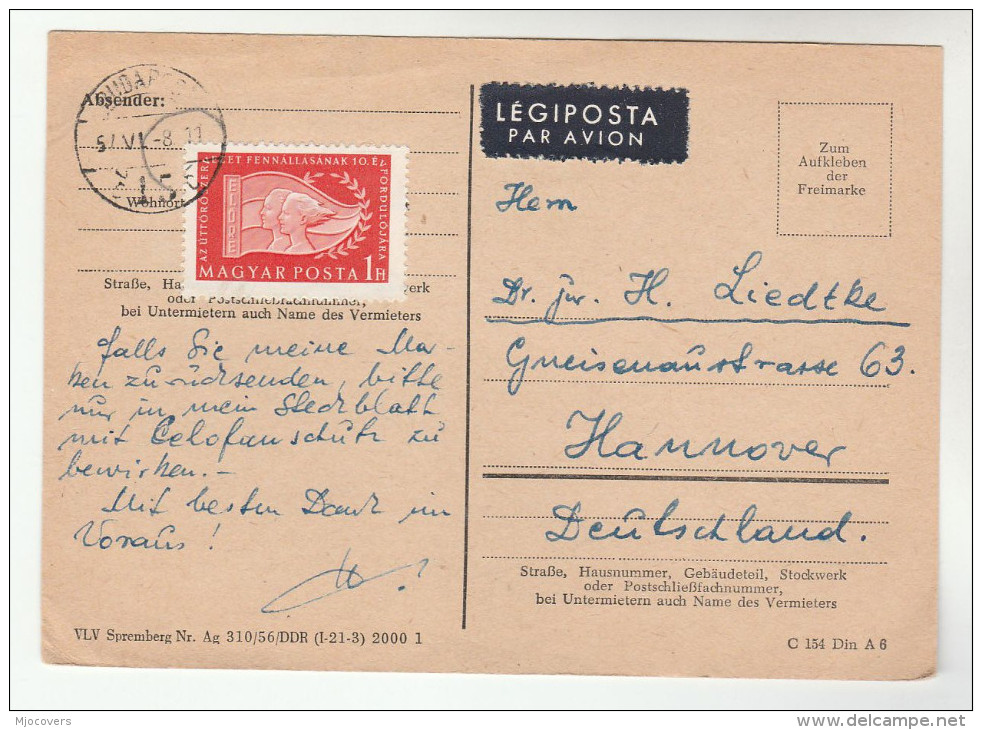 Absender:
BUDAPEST
57 VI -8. 11
15
Wohnort
AZ ÚTTÖRŐSZERVEZET FENNÁLLÁSÁNAK 10. ÉVFORDULÓJÁRA
ELŐRE
MAGYAR POSTA 1 Ft
Straße, Ha
werk
oder Postschließfachnummer,
bei Untermietern auch Name des Vermieters
falls Sie meine Mar-
ken zurücksenden, bitte
nur in mein Steckblatt
mit Celofanschutz zu
bewirken.-
Mit besten Dank im
Voraus!
VLV Spremberg Nr. Ag 310/56/DDR (I-21-3) 2000 1
LÉGIPOSTA
PAR AVION
Zum
Aufkleben
der
Freimarke
Herrn
Dr. jur. H. Liedtke
Gneisenaustrasse 63.
Hannover
Deutschland.
Straße, Hausnummer, Gebäudeteil, Stockwerk
oder Postschließfachnummer,
bei Untermietern auch Name des Vermieters
C 154 Din A 6
Mjocovers
www.delcampe.net